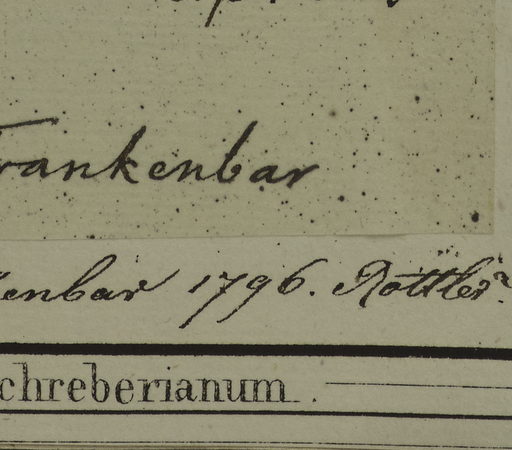 Trankenbar
kenbar 1796. Rottler
chreberianum.